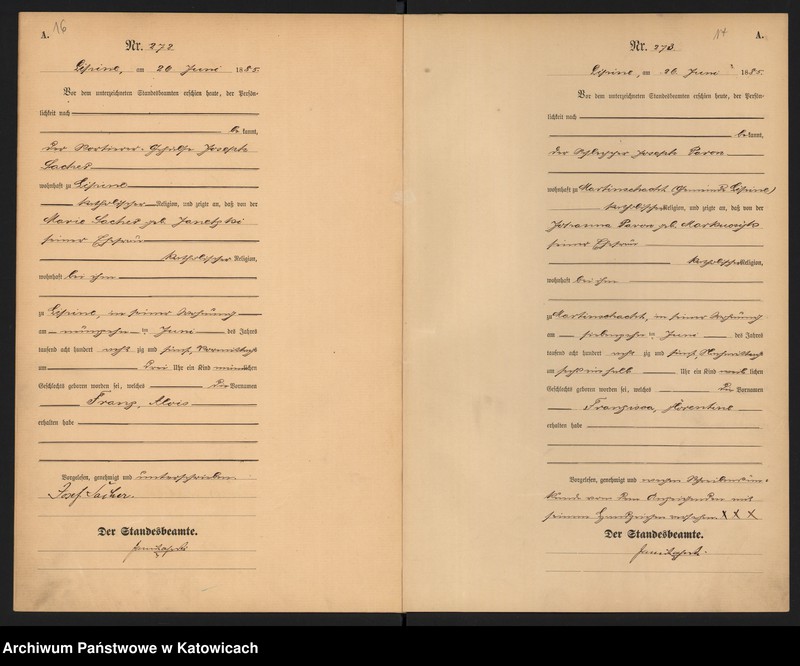 16
A.
Nr. 272
Lipine, am 20 Juni 1885.
Vor dem unterzeichneten Standesbeamten erschien heute, der Persön-
lichkeit nach
be kannt,
der Joseph
Sacher
wohnhaft zu Lipine
katholischer Religion, und zeigte an, daß von der
Marie Sacher geb.
seiner Ehefrau
katholischer Religion,
wohnhaft bei ihm
zu Lipine, in seiner Wohnung
am neunzehn ten Juni des Jahres
tausend acht hundert acht zig und fünf, Vormittags
um drei Uhr ein Kind männlichen
Geschlechts geboren worden sei, welches die Vornamen
Franz, Alois
erhalten habe
Vorgelesen, genehmigt und unterschrieben.
Josef Sacher.
Der Standesbeamte.
14
A.
Nr. 273.
Lipine, am 20 Juni 1885.
Vor dem unterzeichneten Standesbeamten erschien heute, der Persön-
lichkeit nach
be kannt,
der Schlepper Joseph Paron
wohnhaft zu Martinschacht (Gemeinde Lipine)
katholischer Religion, und zeigte an, daß von der
Johanna Paron geb.
seiner Ehefrau
katholischer Religion,
wohnhaft bei ihm
zu Martinschacht, in seiner Wohnung
am siebenzehn ten Juni des Jahres
tausend acht hundert acht zig und fünf, Nachmittags
um sechs ein halb Uhr ein Kind weib lichen
Geschlechts geboren worden sei, welches die Vornamen
Franzisca, Florentine
erhalten habe
Vorgelesen, genehmigt und wegen Schreibensun-
kunde von dem Anzeigenden mit
seinem Handzeichen versehen X X X
Der Standesbeamte.
Archiwum Państwowe w Katowicach